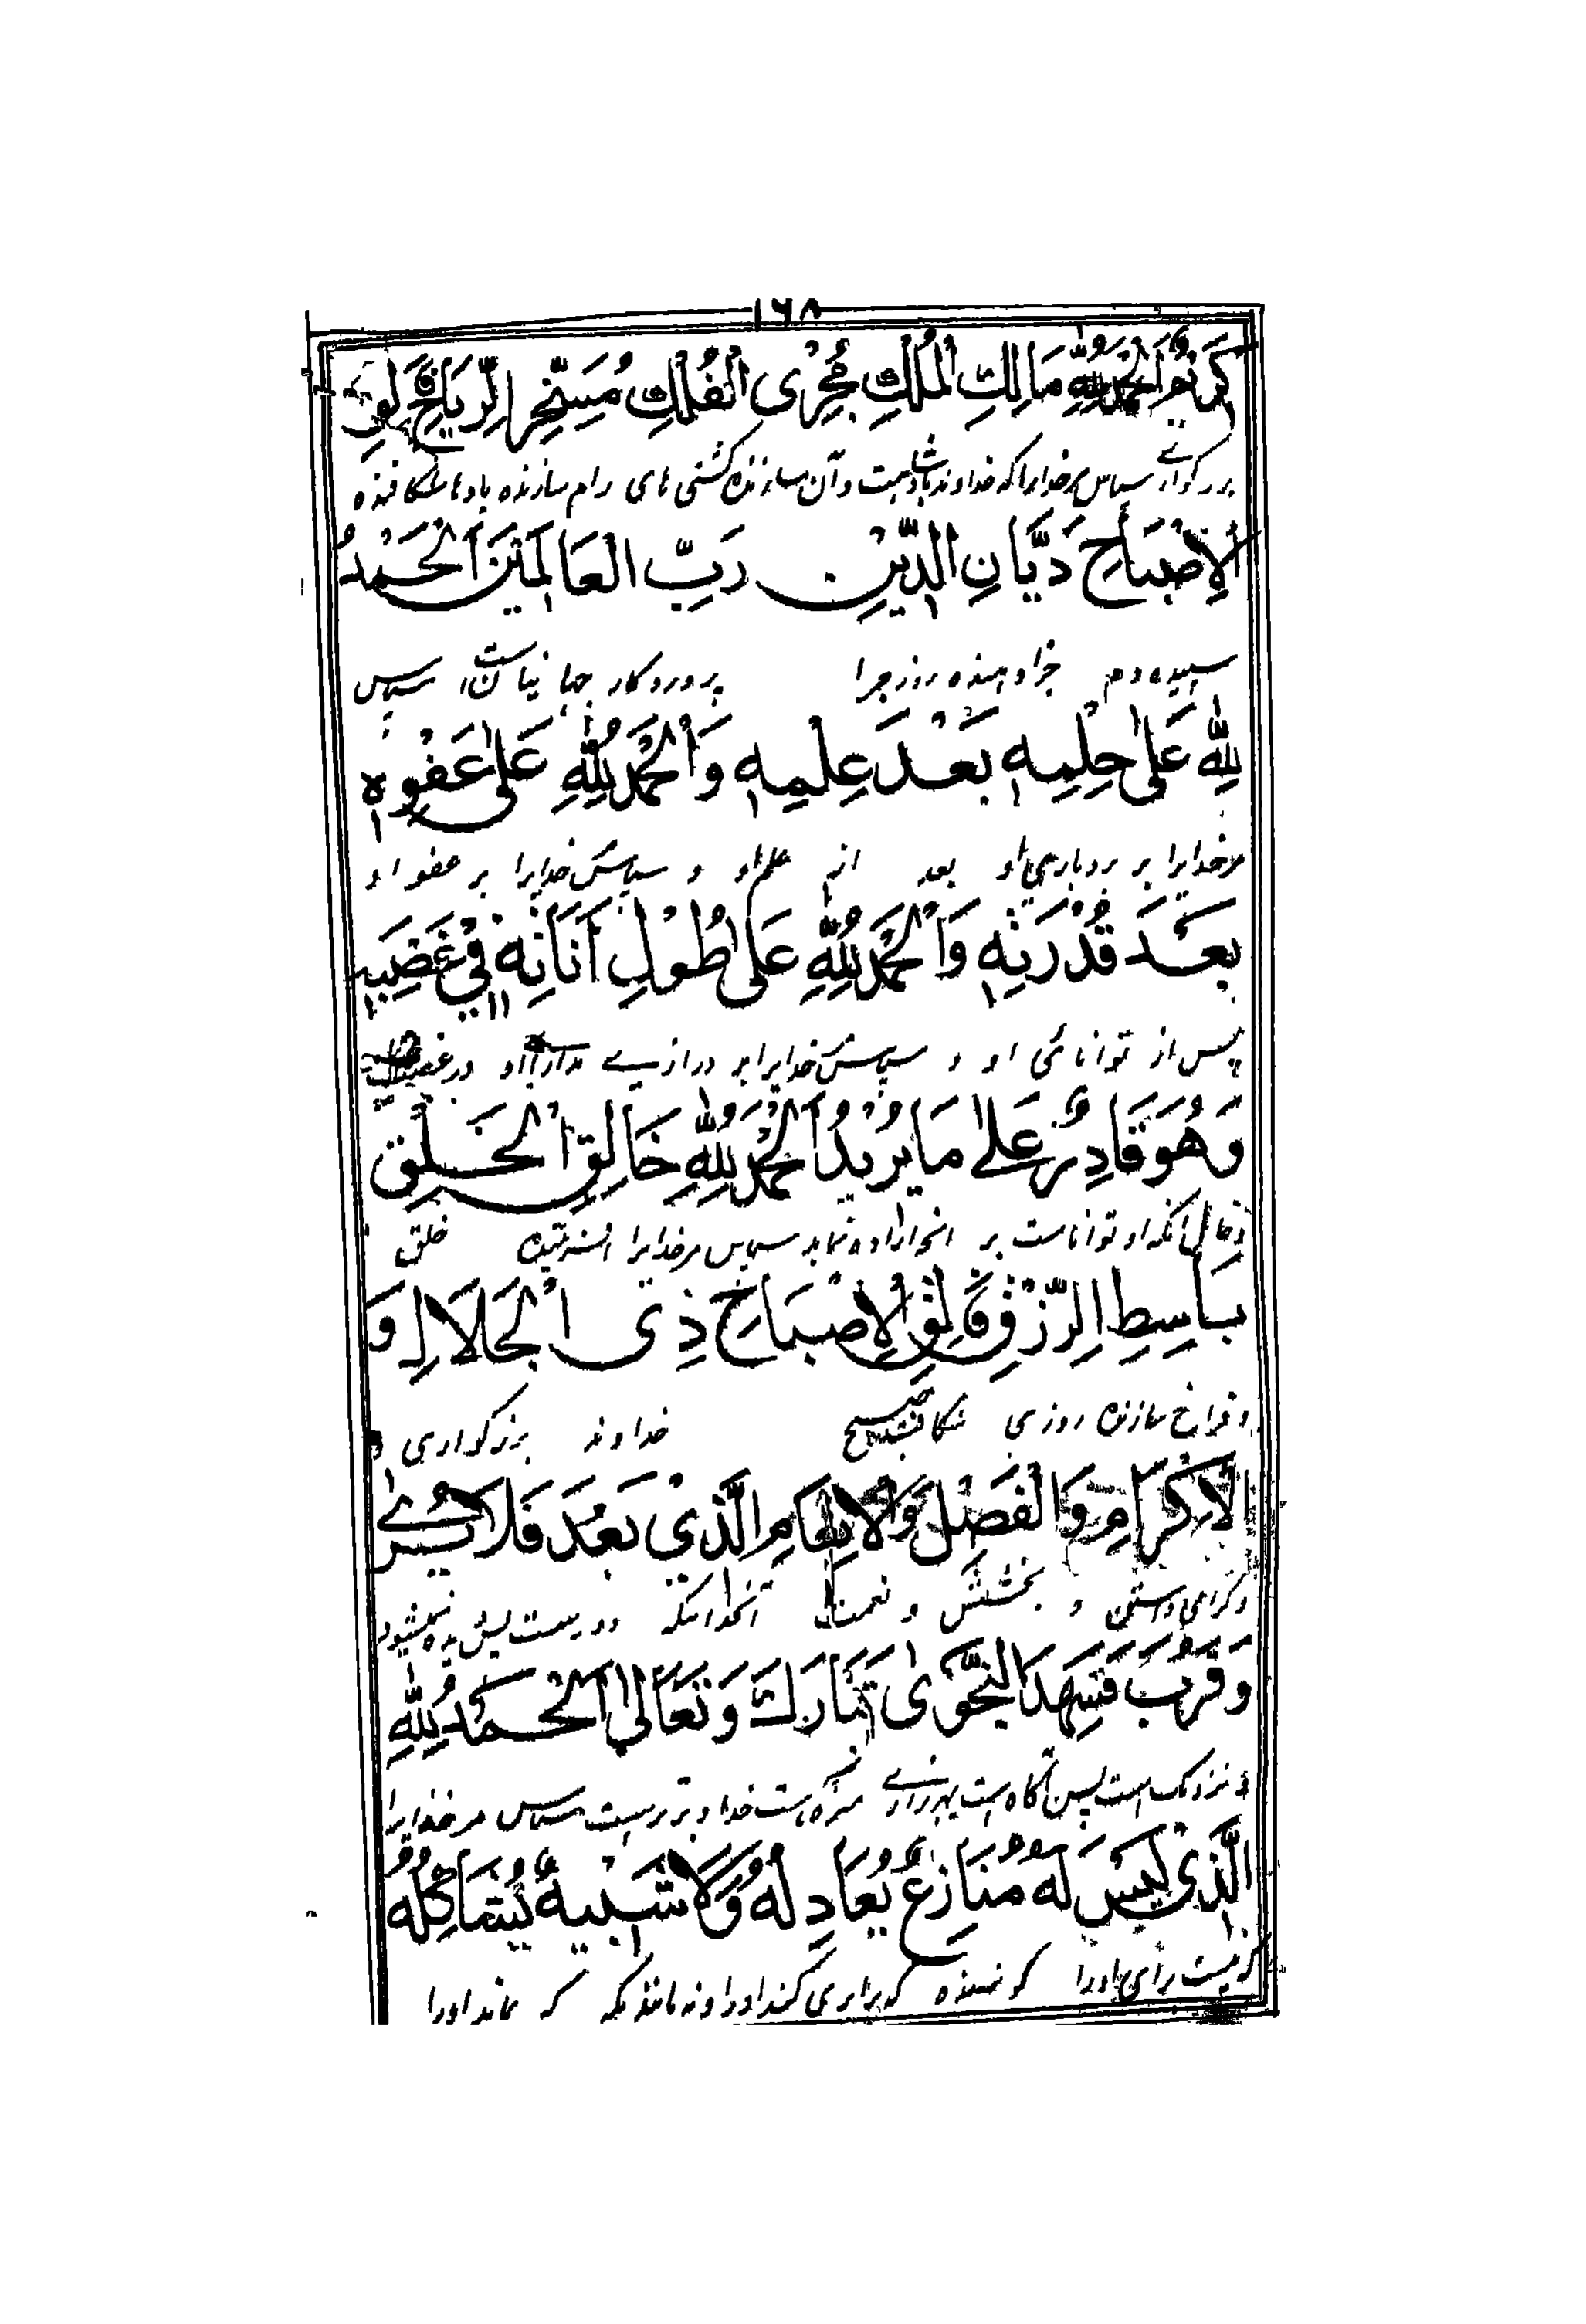 ١٦٨
كَرِيْمٌ اَلْحَمْدُ لِلّٰهِ مَالِكِ الْمُلْكِ مُجْرِى الْفُلْكِ مُسَخِّرِ الرِّيَاحِ فَالِقِ
سپاس مر خدایرا که خداوند کشتی های رام سازنده بادها شکافنده
الْاِصْبَاحِ دَيَّانِ الدِّيْنِ رَبِّ الْعَالَمِيْنَ اَلْحَمْدُ
سپیده دم جزا دهنده روز جزا پروردکار جهانیان است سپاس
لِلّٰهِ عَلٰى حِلْمِهٖ بَعْدَ عِلْمِهٖ وَالْحَمْدُ لِلّٰهِ عَلٰى عَفْوِهٖ
مر خدایرا بر بردباری او بعد از علم او و سپاس خدایرا بر عفو او
بَعْدَ قُدْرَتِهٖ وَالْحَمْدُ لِلّٰهِ عَلٰى طُوْلِ اَنَاتِهٖ فِيْ غَضَبِهٖ
پس از توانائی او و سپاس خدایرا بر درازی مدارای او در غضب
وَهُوَ قَادِرٌ عَلٰى مَا يُرِيْدُ اَلْحَمْدُ لِلّٰهِ خَالِقِ الْخَلْقِ
و حال آنکه او تواناست بر آنچه اراده نماید سپاس مر خدایرا خلق
بَاسِطِ الرِّزْقِ فَالِقِ الْاِصْبَاحِ ذِى الْجَلَالِ وَ
و فراخ سازنده روزی شکافنده صبح خداوند بزرکواری و
الْاِكْرَامِ وَالْفَضْلِ وَالْاِنْعَامِ الَّذِيْ بَعُدَ فَلَا يُرٰى
و کرامی داشتن و بخشش و نعمت آنخدائیکه دور است پس دیده نمیشود
وَقَرُبَ فَشَهِدَ النَّجْوٰى تَبَارَكَ وَتَعَالٰى اَلْحَمْدُ لِلّٰهِ
و نزدیک است پس آگاه است خدا و برتر است سپاس مر خدایرا
الَّذِيْ لَيْسَ لَهٗ مُنَازِعٌ يُعَادِلُهٗ وَلَا شَبِيْهٌ يُشَاكِلُهٗ
که نیست برای او را که برابری کند او را و نه مانندیکه که ماند او را